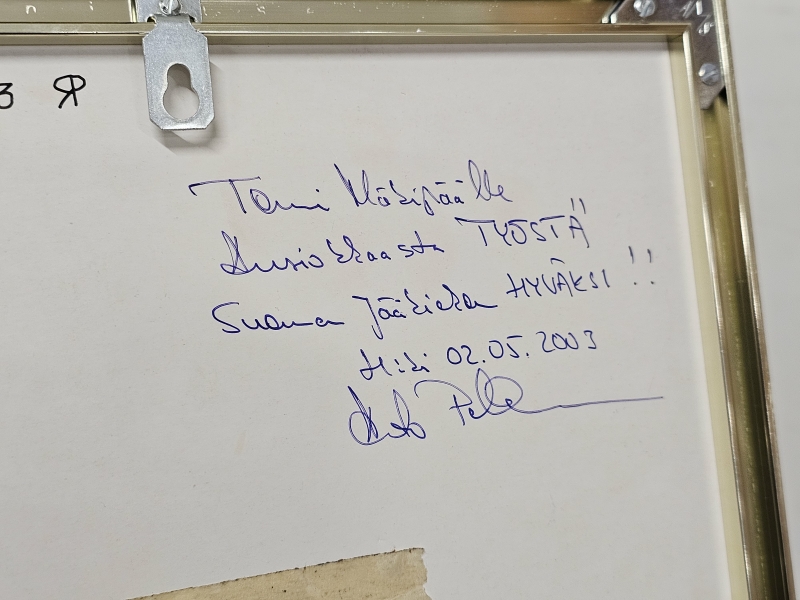 3 ЯP
Tomi Mäkipäälle
Ansiokkaasta TYÖSTÄ
Suomen Jääkiekon HYVÄKSI !!
H:ki 02.05.2003